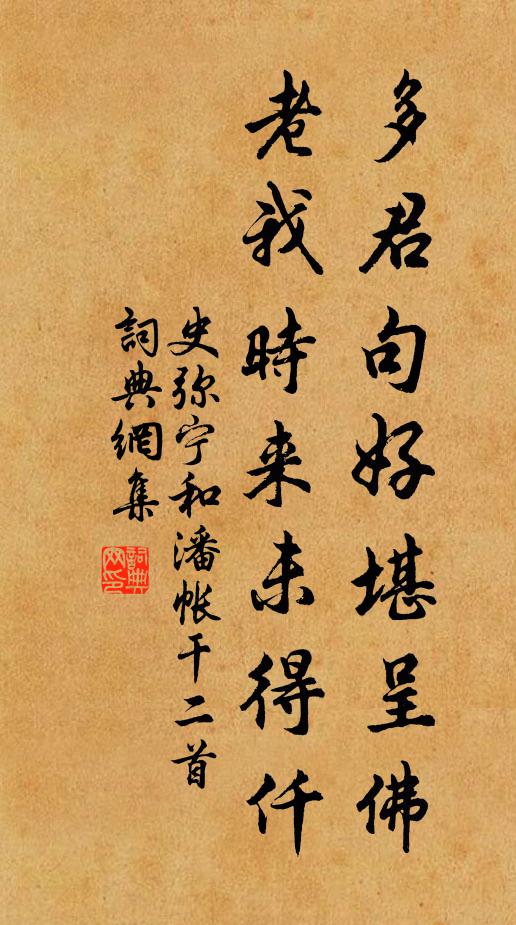 多君句好堪呈佛
老我時来未得仟
史弥宁和潘帐干二首
詞典網集
詞典网印